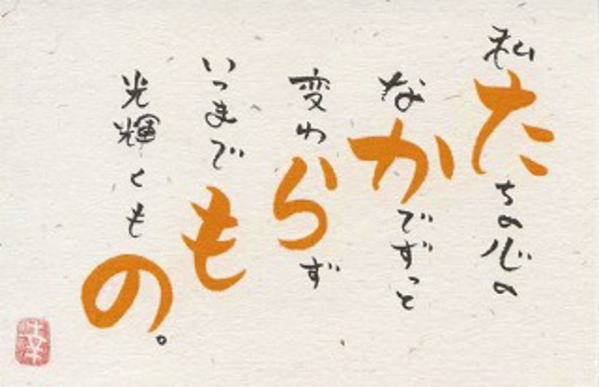 私たちの心の
なかでずっと
変わらず
いつまでも
光輝くもの。
幸